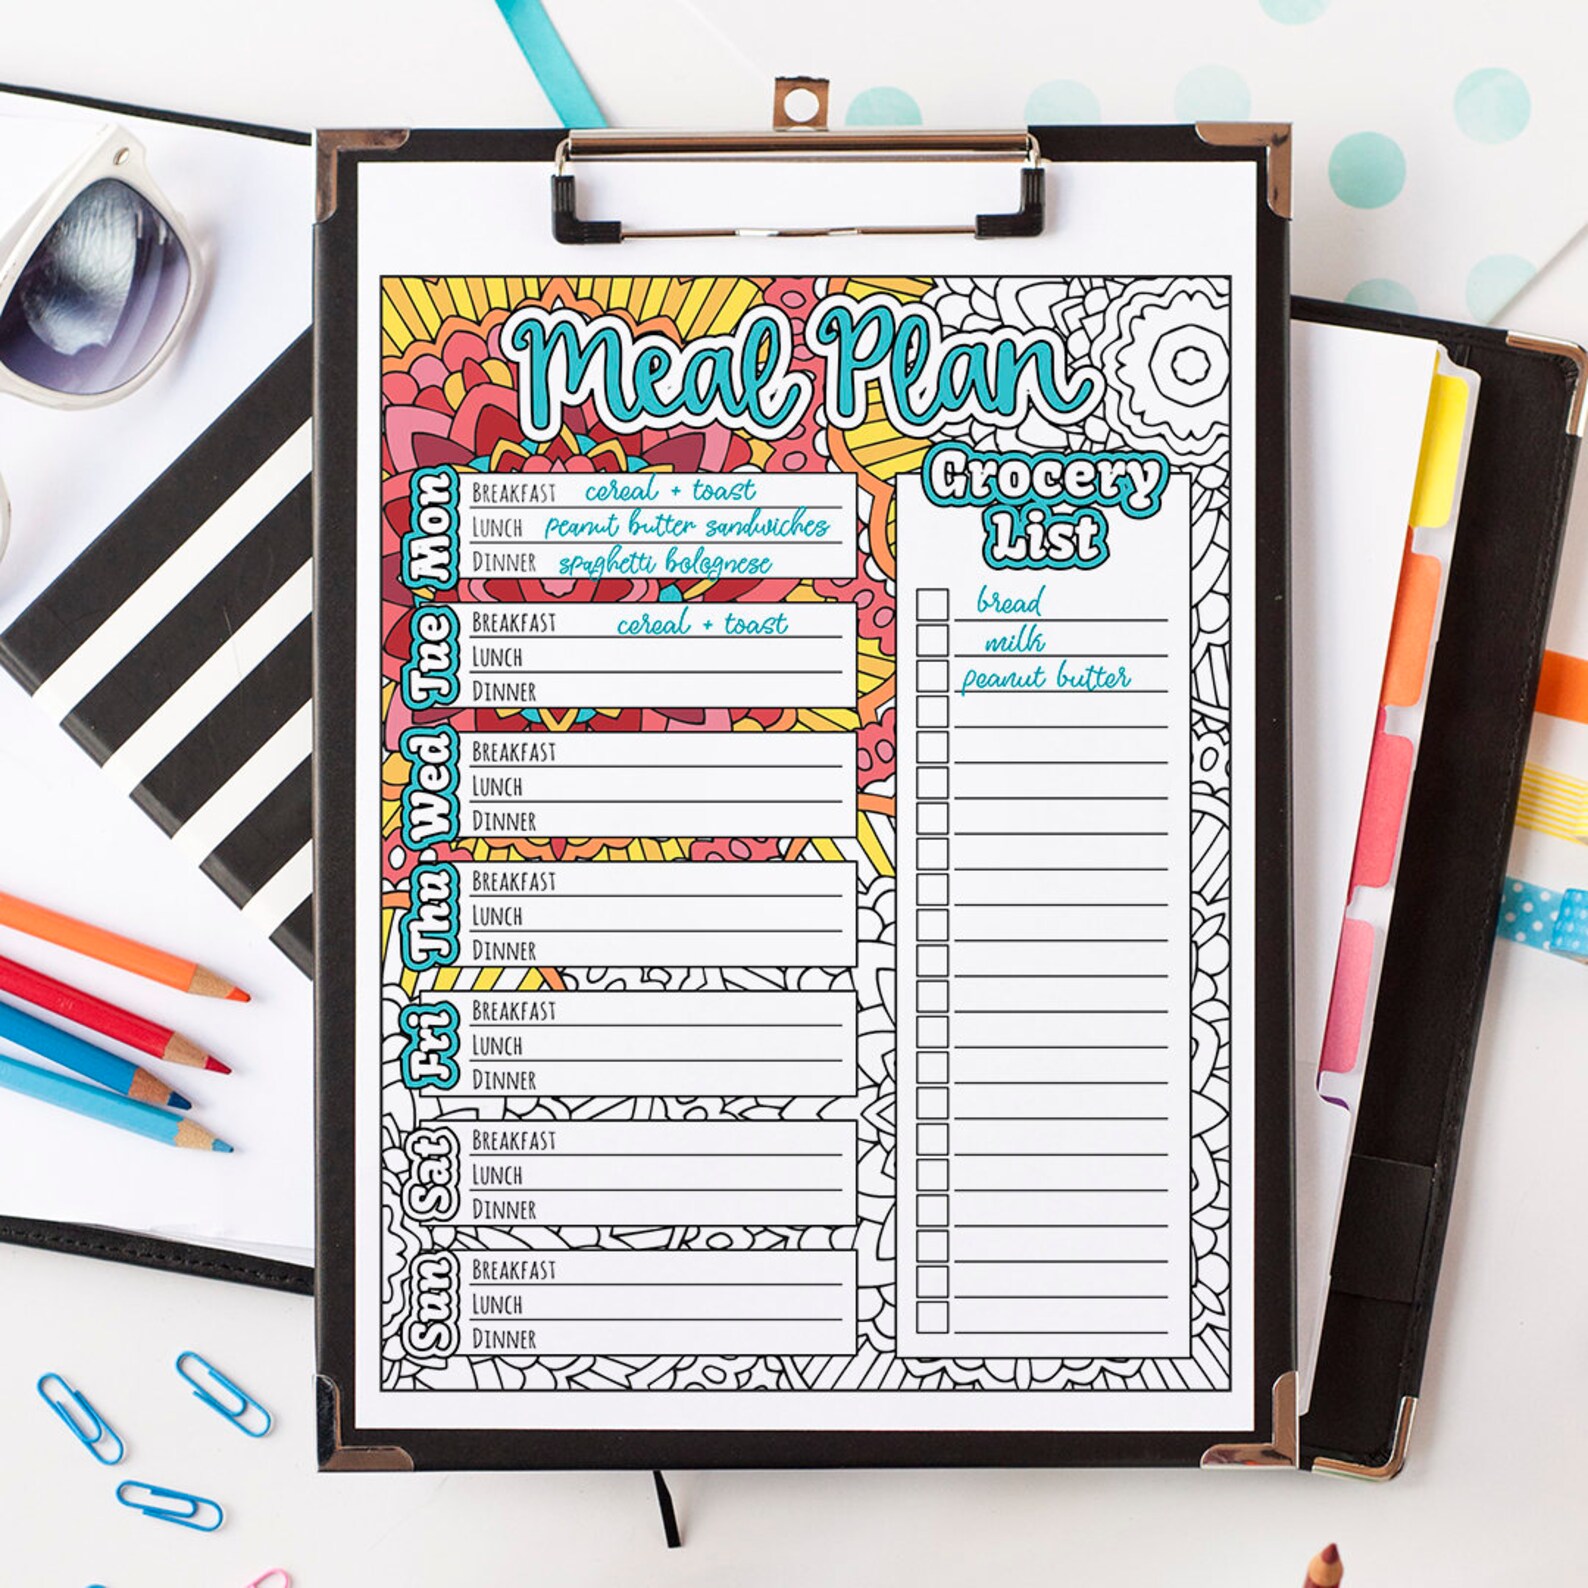 Meal Plan
Mon
Breakfast cereal + toast
Lunch peanut butter sandwiches
Dinner spaghetti bolognese
Tue
Breakfast cereal + toast
Lunch
Dinner
Wed
Breakfast
Lunch
Dinner
Thu
Breakfast
Lunch
Dinner
Fri
Breakfast
Lunch
Dinner
Sat
Breakfast
Lunch
Dinner
Sun
Breakfast
Lunch
Dinner
Grocery
List
bread
milk
peanut butter